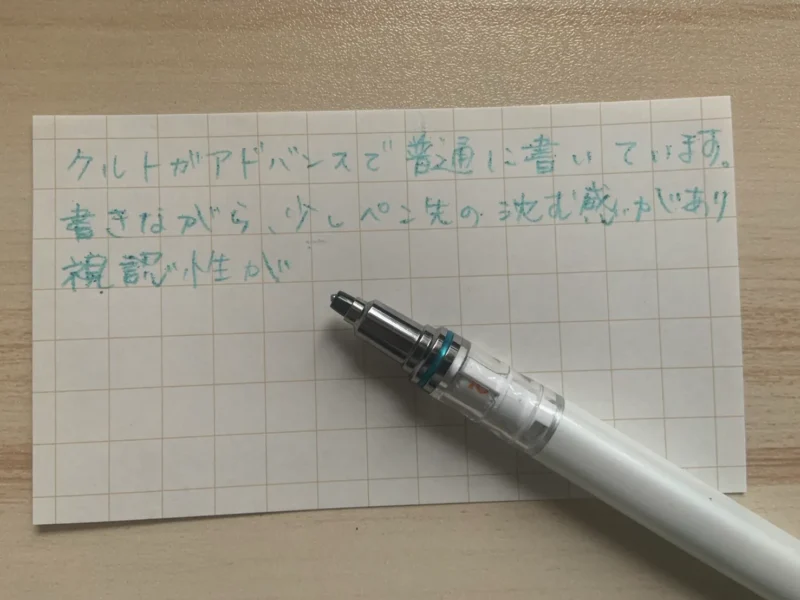 クルトガアドバンスで普通に書いています。
書きながら、少しペン先の沈む感じがあり
視認性が